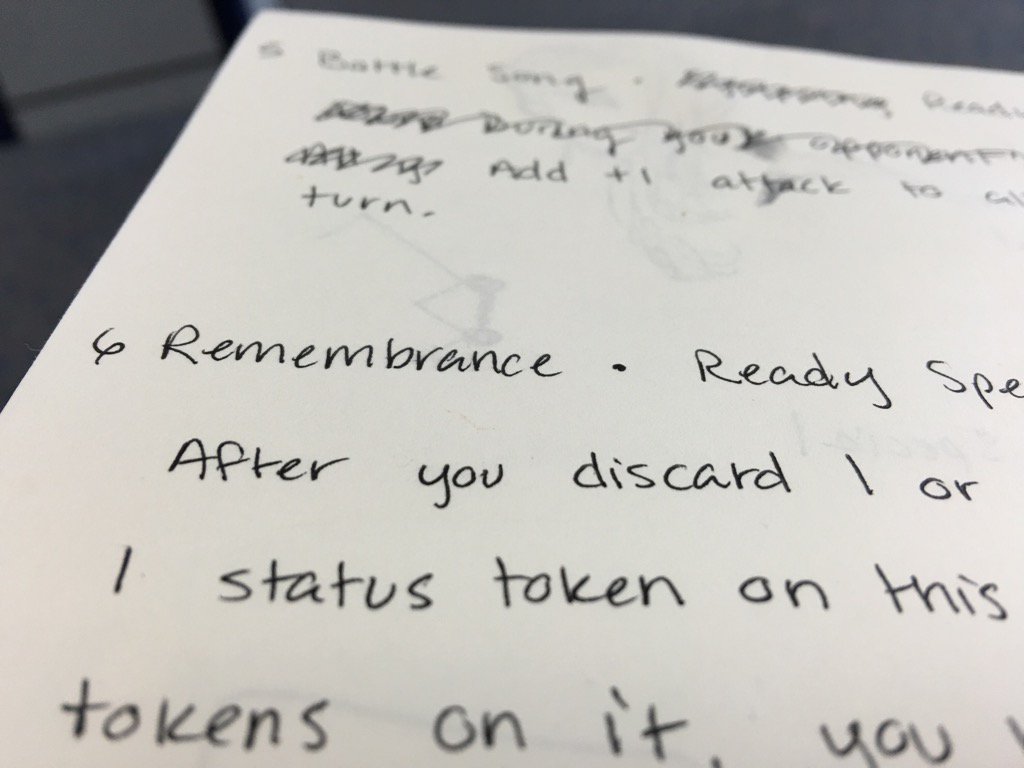 5 Battle Song . Ready
During your opponent
Add +1 attack to all
turn.
6 Remembrance . Ready Spe
After you discard 1 or
1 status token on this
tokens on it, you